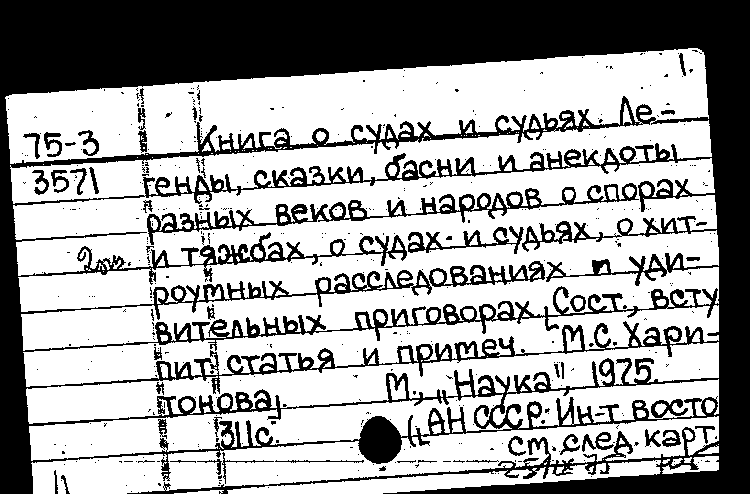 1.
75-3 Книга о судах и судьях. Ле-
3571 генды, сказки, басни и анекдоты
разных веков и народов о спорах
2 экз. и тяжбах, о судах и судьях, о хит-
роумных расследованиях и уди-
вительных приговорах. [Сост., всту
пит. статья и примеч. М.С. Хари-
тонова].
М., „Наука", 1975.
311с. (АН СССР. Ин-т восто
см. след. карт.